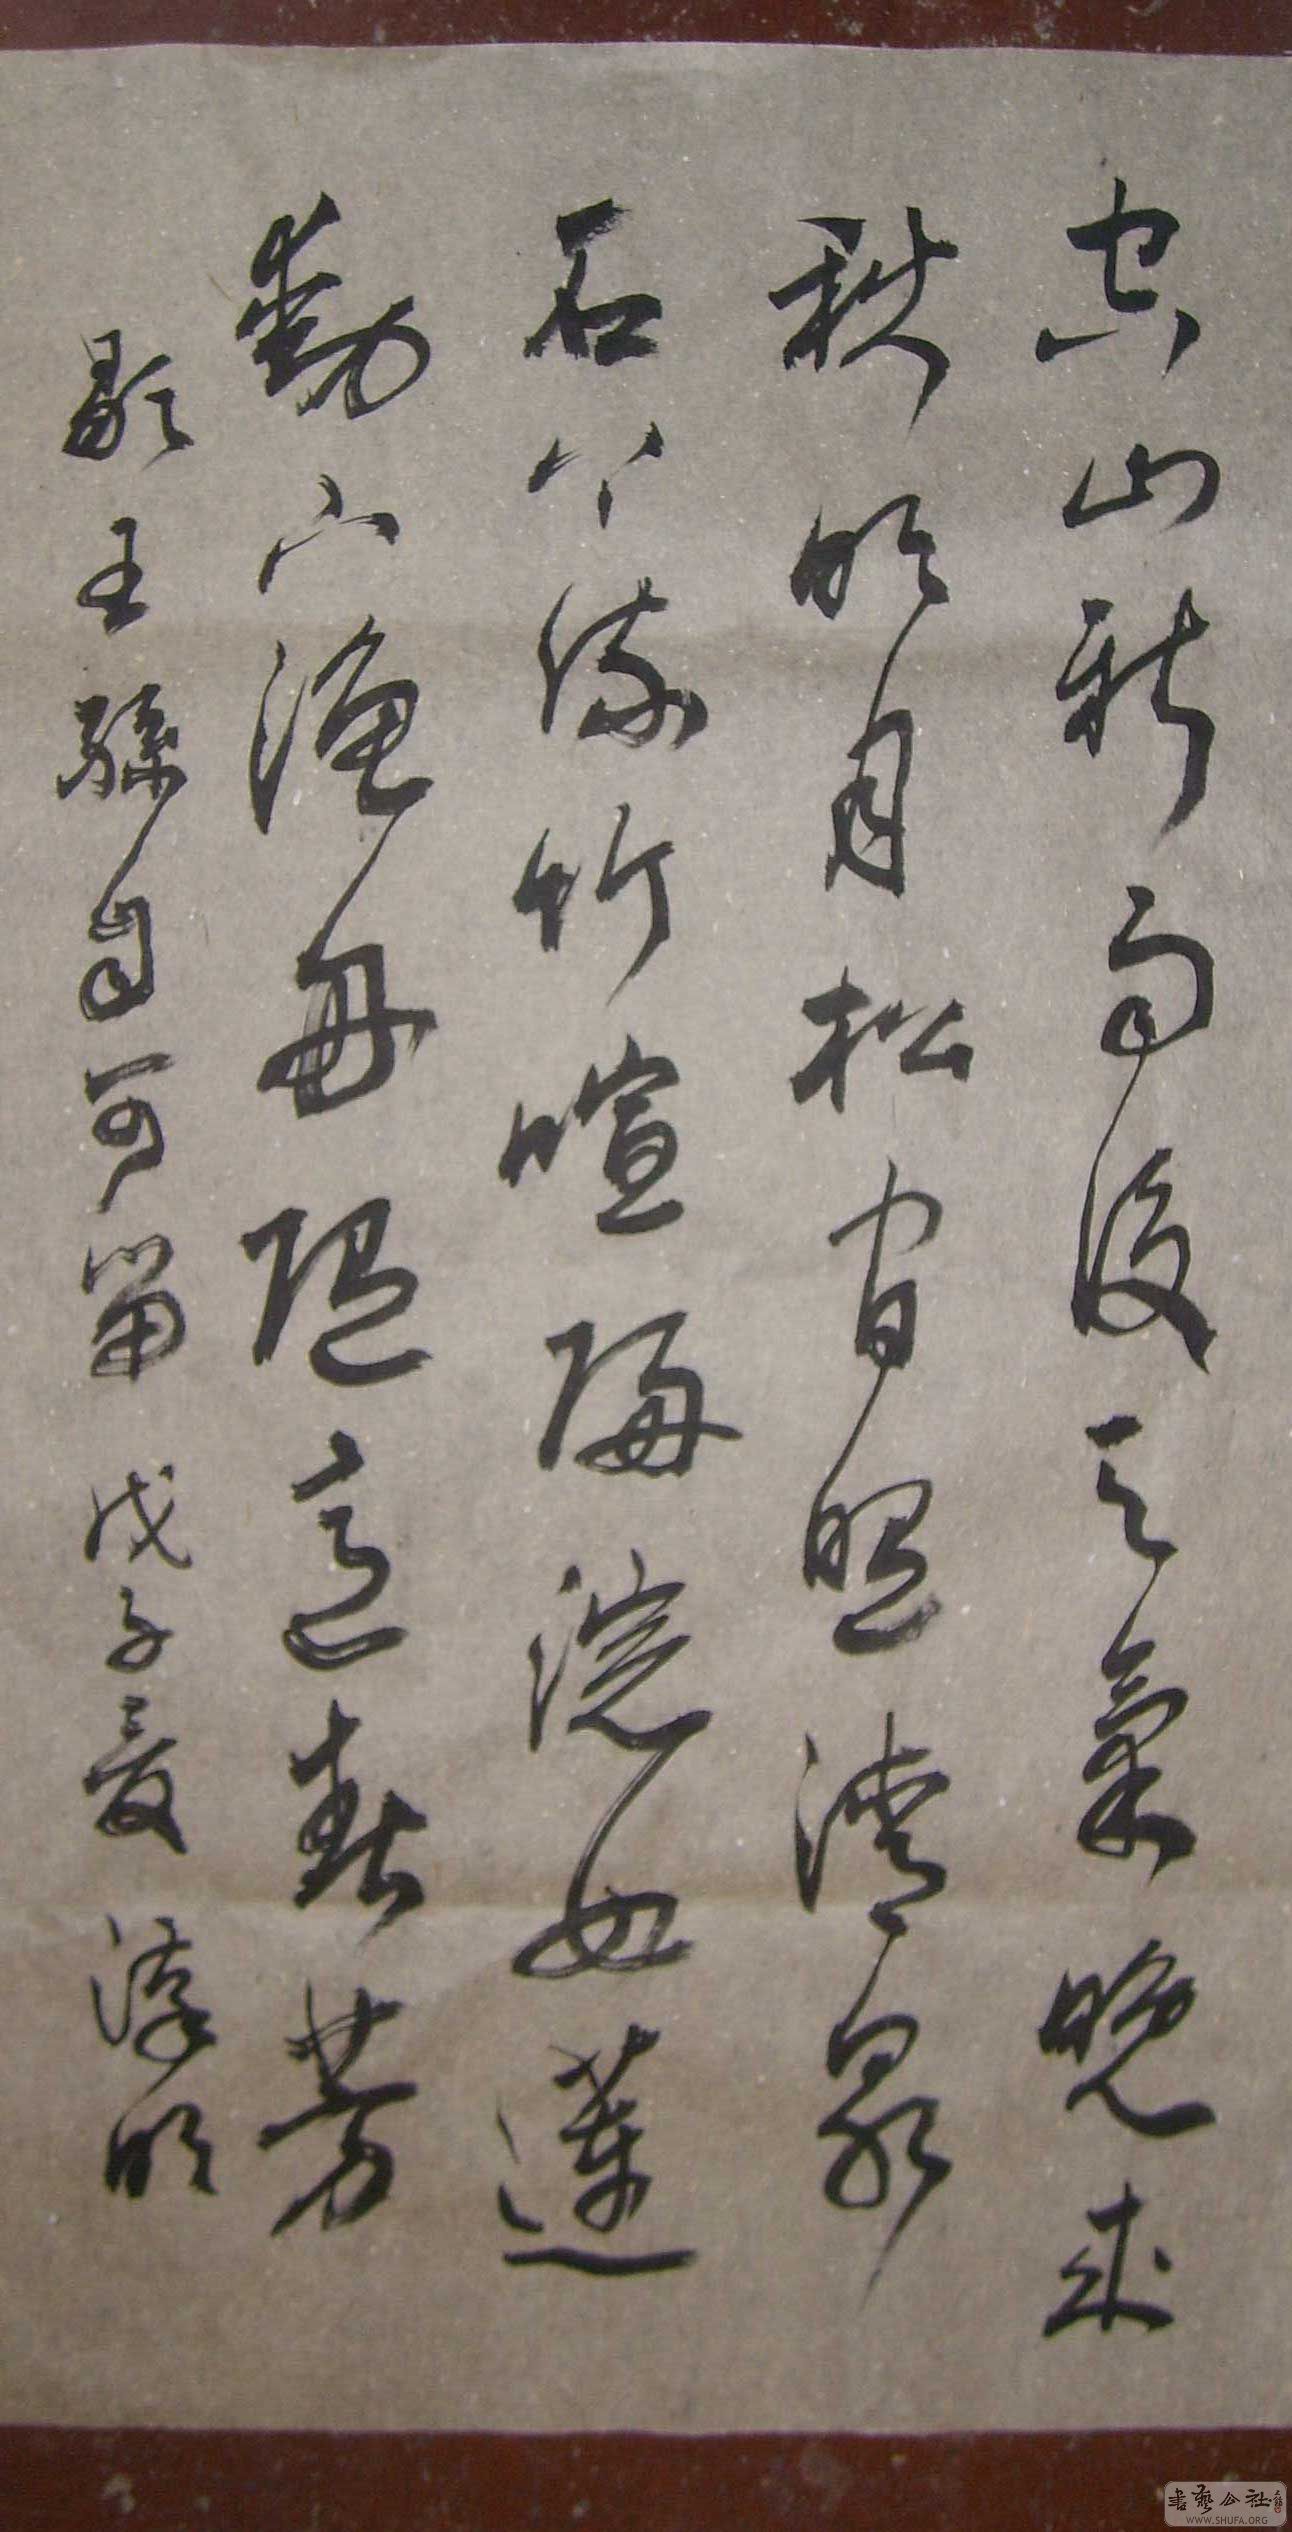 空山新雨後天氣晚來
秋明月松間照清泉
石上流竹喧歸浣女蓮
動下漁舟隨意春芳
歇王孫自可留 戊子夏
書藝公社
WWW.SHUFA.ORG